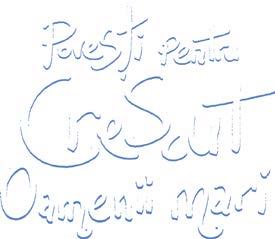 Povești pentru
CreScut
Oamenii mari